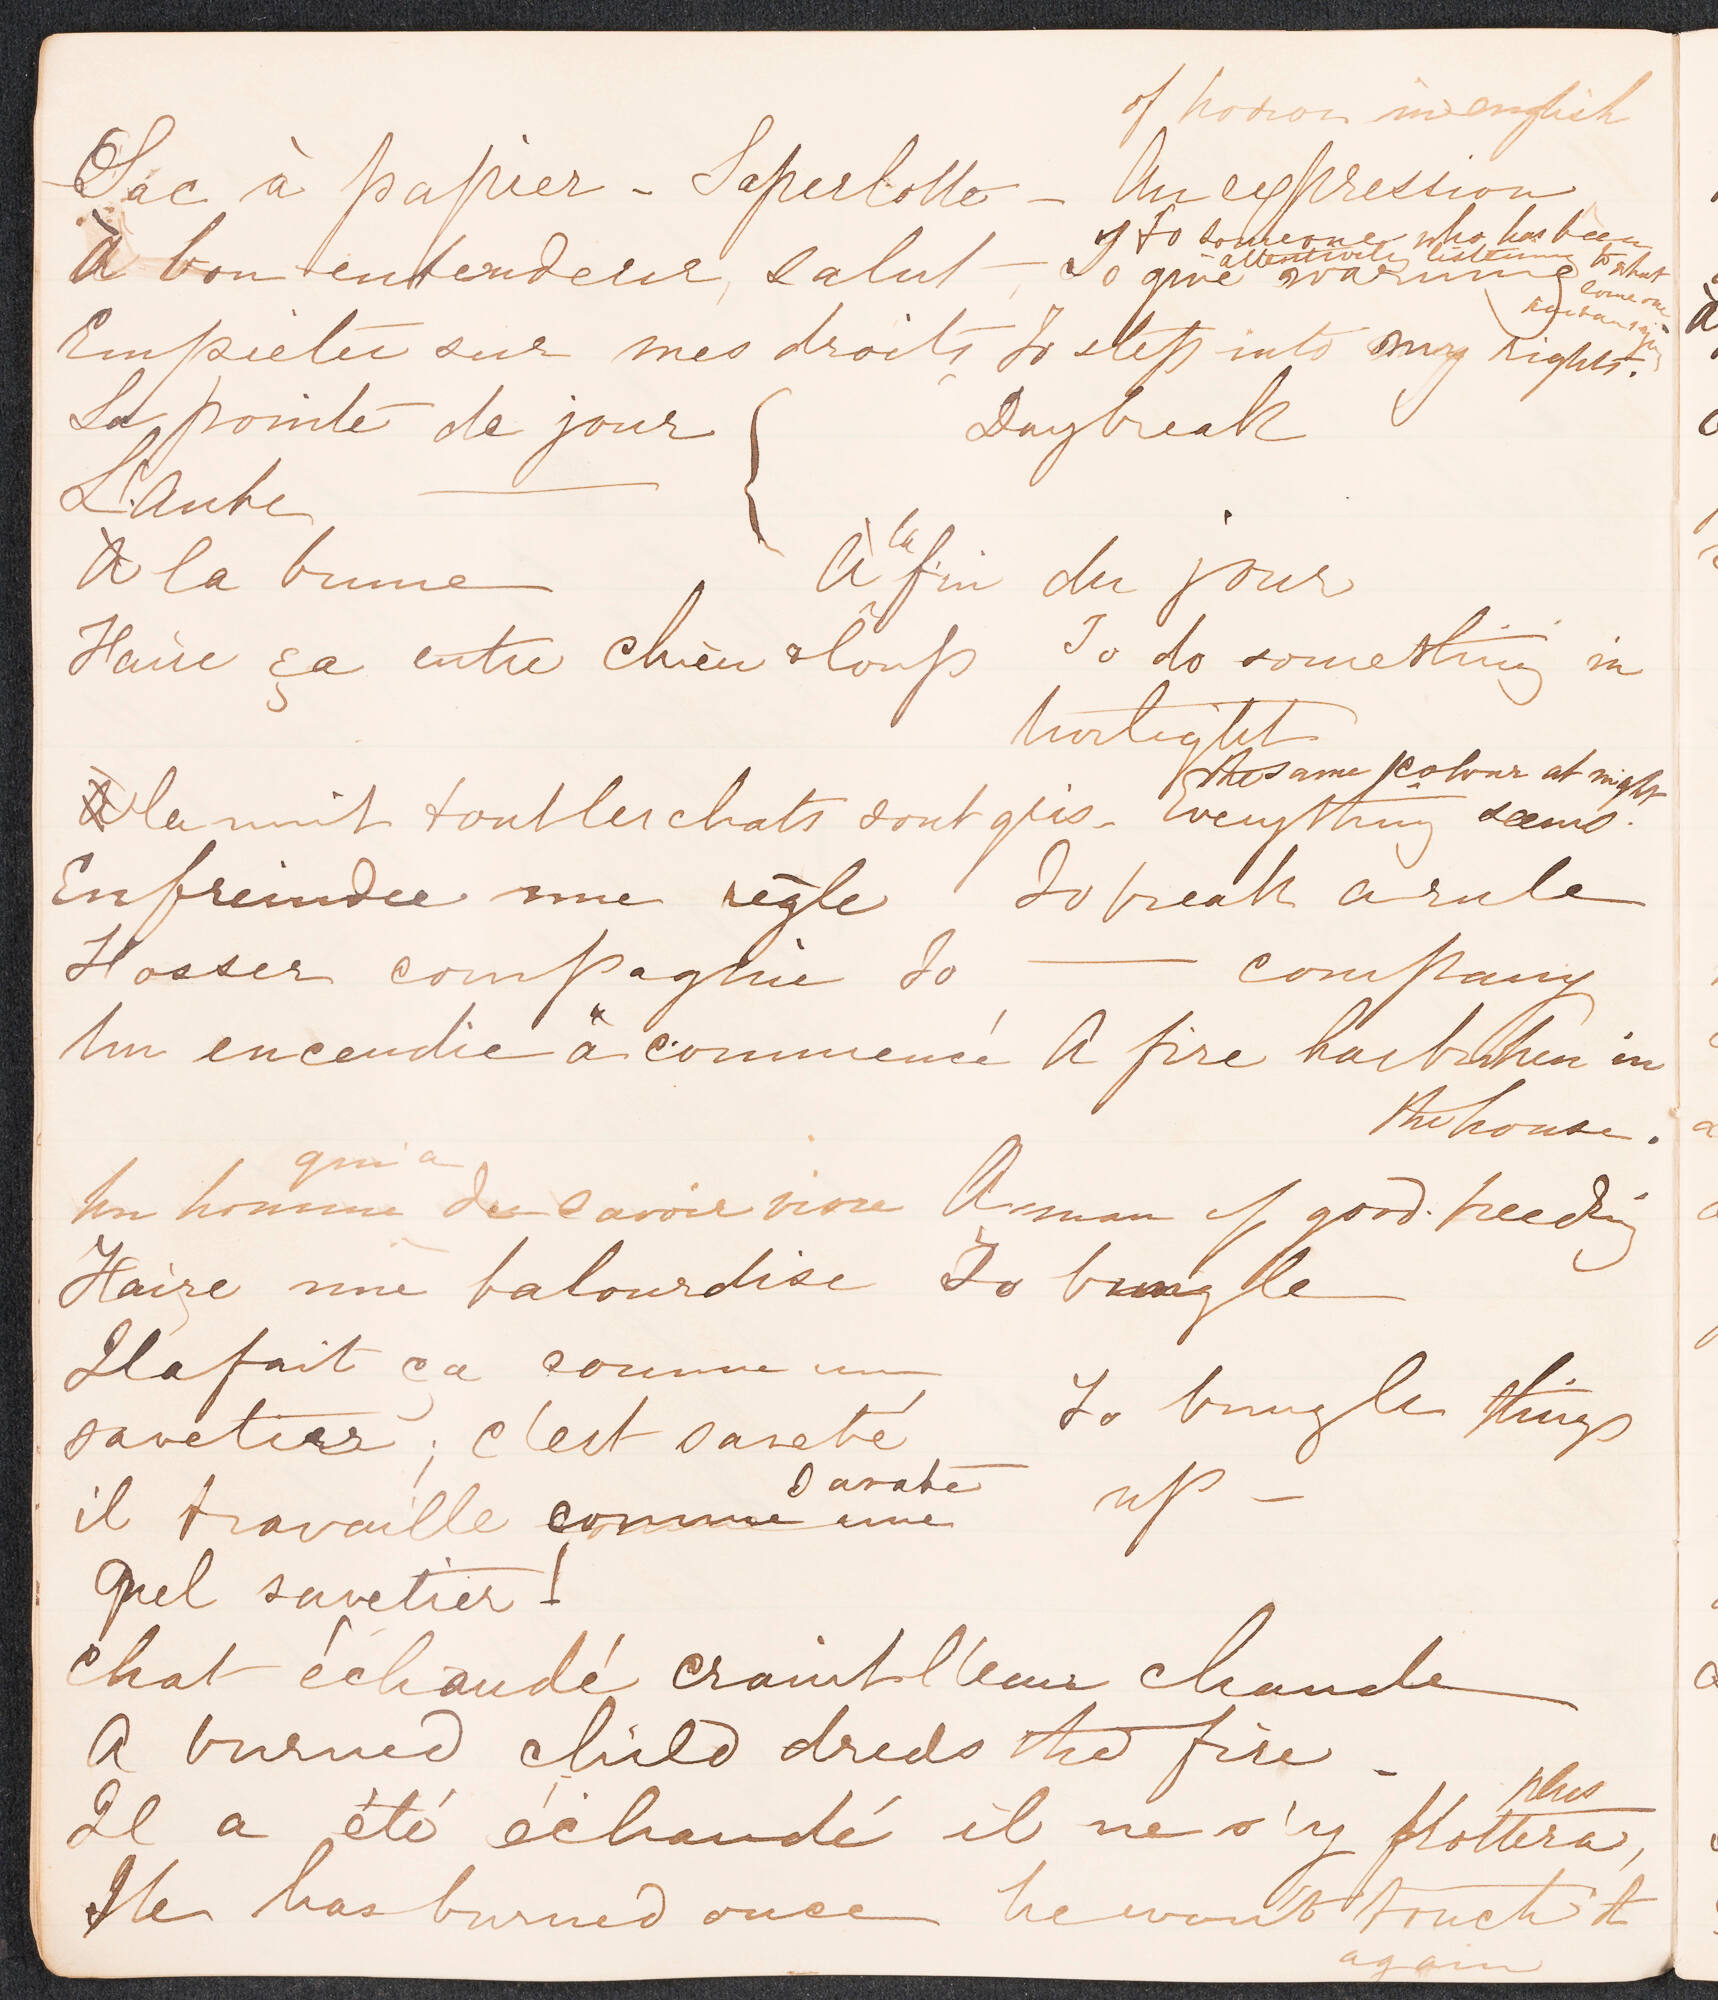 of horror in english
Sac à papier - Saperlotte - An expression
to someone who has been
attentively listening to what
some one
À bon entendeur, salut - To give warning
has been saying
Empiéter sur mes droits To step into my rights.
La pointe de jour Daybreak
L'Aube
À la brune À la fin du jour
Faire ça entre chien & loup To do something in
twilight
the same colour at night
la nuit tout les chats sont gris - Everything seems
Enfreindre une règle To break a rule
Fosser compagnie To — company
Un encendie a commencé A fire has broken in
the house.
qui a
Un homme du savoir vivre A man of good breeding
Faire une balourdise To bungle
Il a fait ça comme un
savetier; c'est saveté To bungle things
savate
il travaille comme une up -
Quel savetier!
Chat échaudé craint l'eau chaude
A burned child dreds the fire -
plus
Il a été échaudé il ne s'y frottera,
He has burned once he won't touch it
again